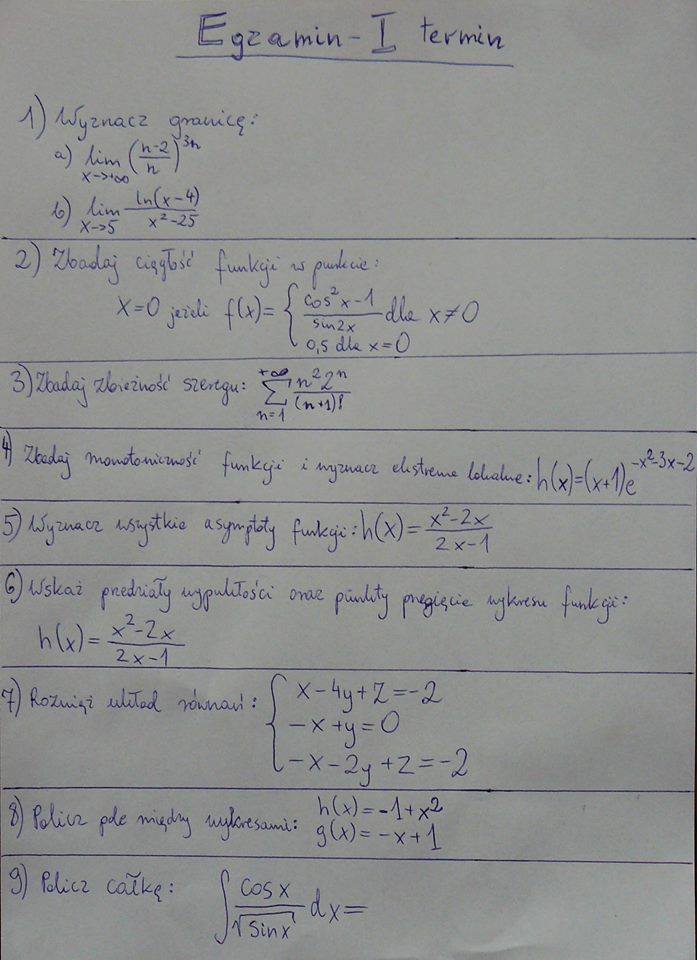 Egzamin - I termin
1) Wyznacz granicę:
a) lim x->+∞ (n-2/n)^3n
b) lim x->5 ln(x-4)/x²-25
2) Zbadaj ciągłość funkcji w punkcie:
x=0 jeżeli f(x)= { cos²x-1/sin2x dla x≠0
0,5 dla x=0
3) Zbadaj zbieżność szeregu: +∞ Σ n=1 n²2ⁿ/(n+1)!
4) Zbadaj monotoniczność funkcji i wyznacz ekstrema lokalne: h(x)=(x+1)e^-x²-3x-2
5) Wyznacz wszystkie asymptoty funkcji: h(x)= x²-2x/2x-1
6) Wskaż przedziały wypukłości oraz punkty przegięcie wykresu funkcji:
h(x)= x²-2x/2x-1
7) Rozwiąż układ równań: { x-4y+z=-2
-x+y=0
-x-2y+z=-2
8) Policz pole między wykresami: h(x)=-1+x²
g(x)=-x+1
9) Policz całkę: ∫ cosx/√sinx dx=